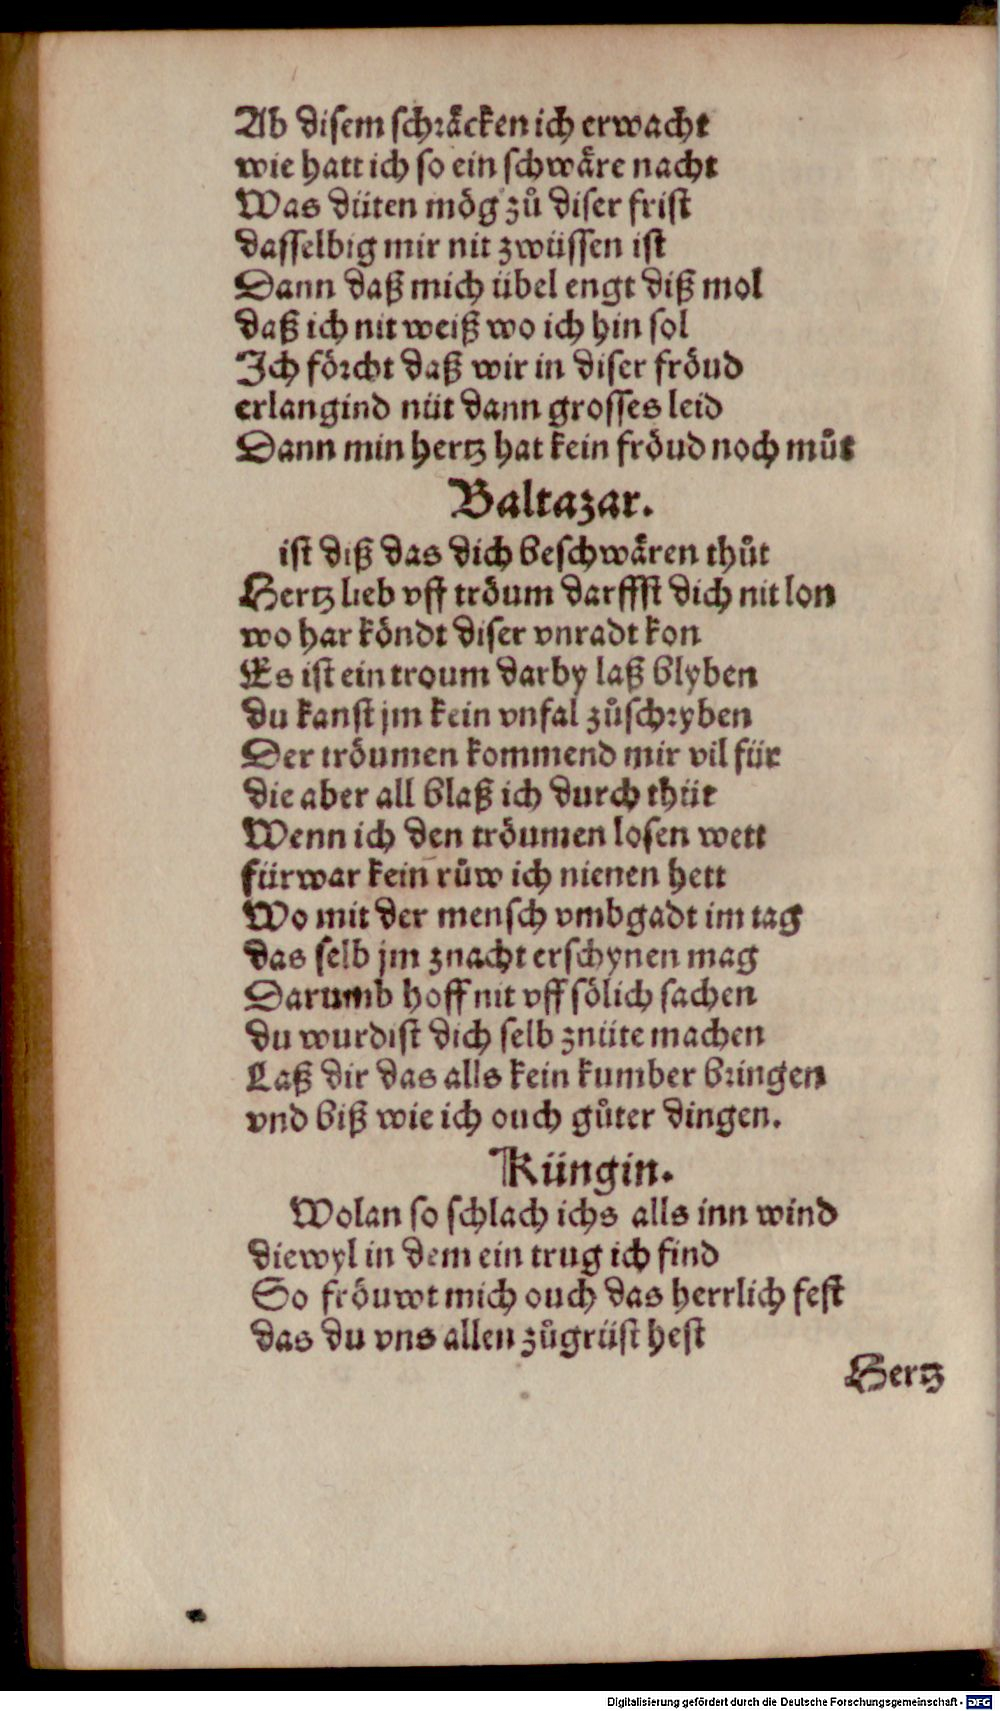 Ab disem schräcken ich erwacht
wie hatt ich so ein schwäre nacht
Was düten mög zů diser frist
dasselbig mir nit zwüssen ist
Dann daß mich übel engt diß mol
daß ich nit weiß wo ich hin sol
Ich förcht daß wir in diser fröud
erlangind nüt dann grosses leid
Dann min hertz hat kein fröud noch můt
Baltazar.
ist diß das dich beschwären thůt
Hertz lieb vff tröum darffst dich nit lon
wo har köndt diser vnradt kon
Es ist ein troum darby laß blyben
du kanst jm kein vnfal zůschryben
Der tröumen kommend mir vil für
die aber all blaß ich durch thür
Wenn ich den tröumen losen wett
fürwar kein růw ich nienen hett
Wo mit der mensch vmbgadt im tag
das selb jm znacht erschynen mag
Darumb hoff nit vff sölich sachen
du wurdist dich selb znüte machen
Laß dir das alls kein kumber bringen
vnd biß wie ich ouch gůter dingen.
Küngin.
Wolan so schlach ichs alls inn wind
diewyl in dem ein trug ich find
So fröuwt mich ouch das herrlich fest
das du vns allen zůgrüst hest
Hertz
Digitalisierung gefördert durch die Deutsche Forschungsgemeinschaft - DFG